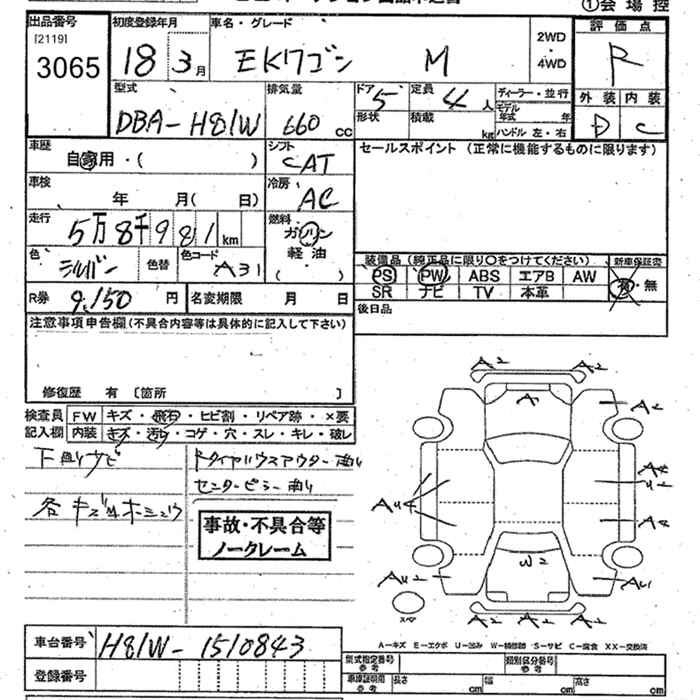 ①会場控
出品番号 初度登録年月 車名・グレード 評価点
[2119]
3065 18年3月 EKワゴン M 2WD・4WD R
型式 排気量 ドア 5 定員 4人 ディーラー・並行 外装 内装
DBA-H81W 660cc 形状 積載 kg モデル年式 年 D C
ハンドル 左・右
車歴 自家用・( ) シフト CAT セールスポイント (正常に機能するものに限ります)
車検 年 月( 日) 冷房 AC
走行 5万8千981km 燃料 ガソリン
軽油
( )
色 シルバー 色替 色コード A31
装備品 (純正品に限り○をつけてください) 新車保証書
PS PW ABS エアB AW 有・無
SR ナビ TV 本革
R券 9,150円 名変期限 月 日 後日品
注意事項申告欄(不具合内容等は具体的に記入して下さい)
修復歴 有 〔箇所 〕
検査員 FW キズ・飛石・ヒビ割・リペア跡・×要
記入欄 内装 キズ・汚れ・コゲ・穴・スレ・キレ・破レ
下廻りサビ
センターピラー曲り
事故・不具合等
ノークレーム
A2 A2
A A2
A4
A4
W2
A2 A2 A2
A-キズ E-エクボ U-凹み W-補修跡 S-サビ C-腐食 XX-交換済
車台番号 H81W-1510843
登録番号
型式指定番号 参考 類別区分番号 参考
車庫証明用 参考 長さ cm 幅 cm 高さ cm